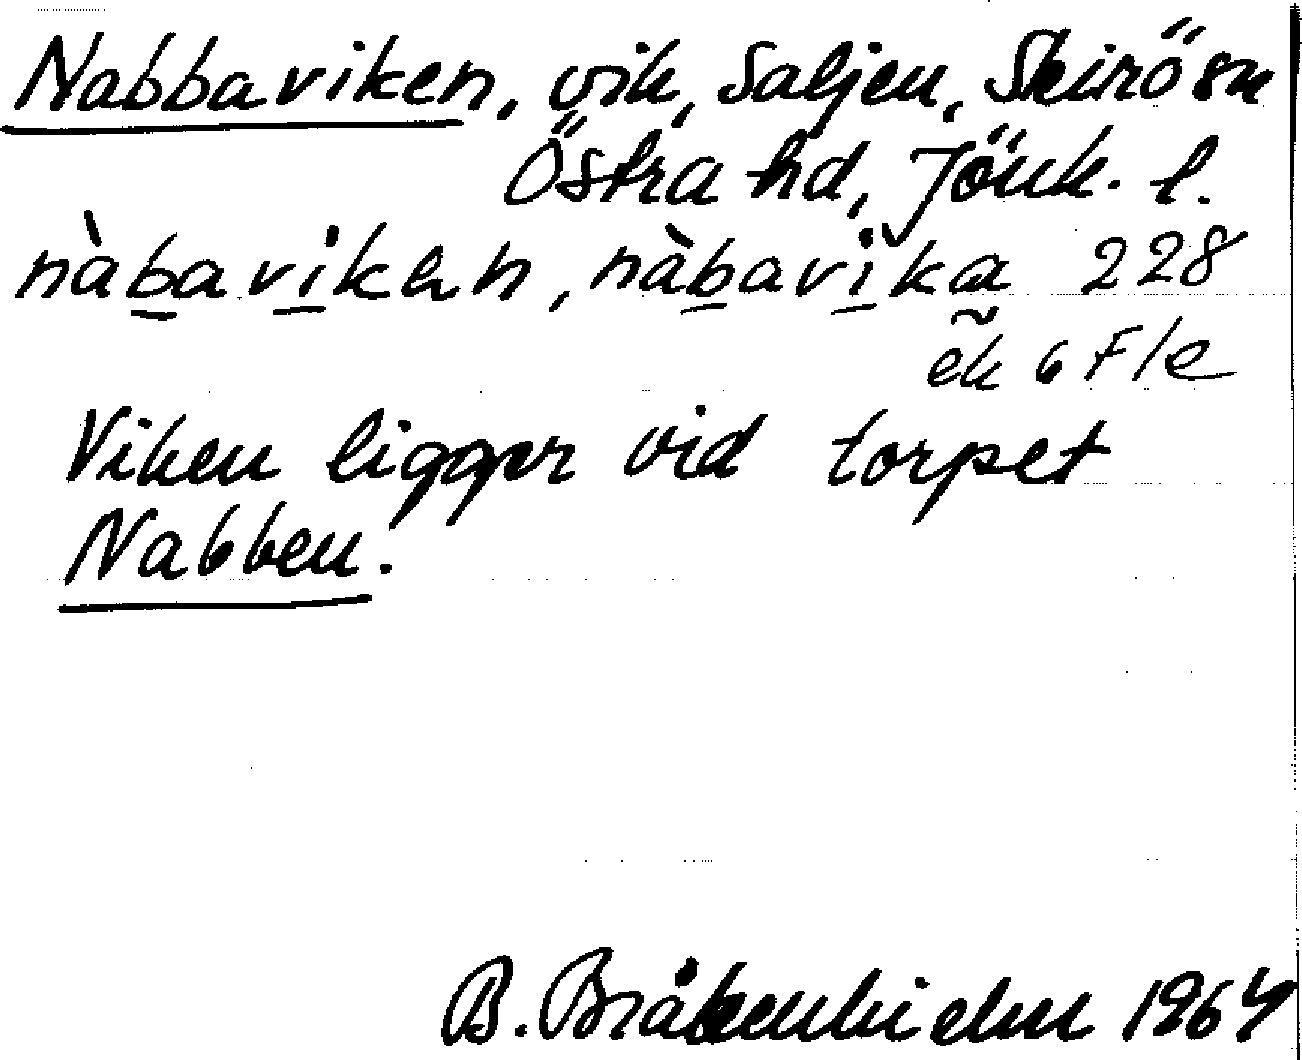 Nabbaviken, vik, Saljen, Skirö sn
Östra hd, Jönk. l.
nàbavikən, nàbavika 228
ek 6 F/e
Viken ligger vid torpet
Nabben.
B. 1964